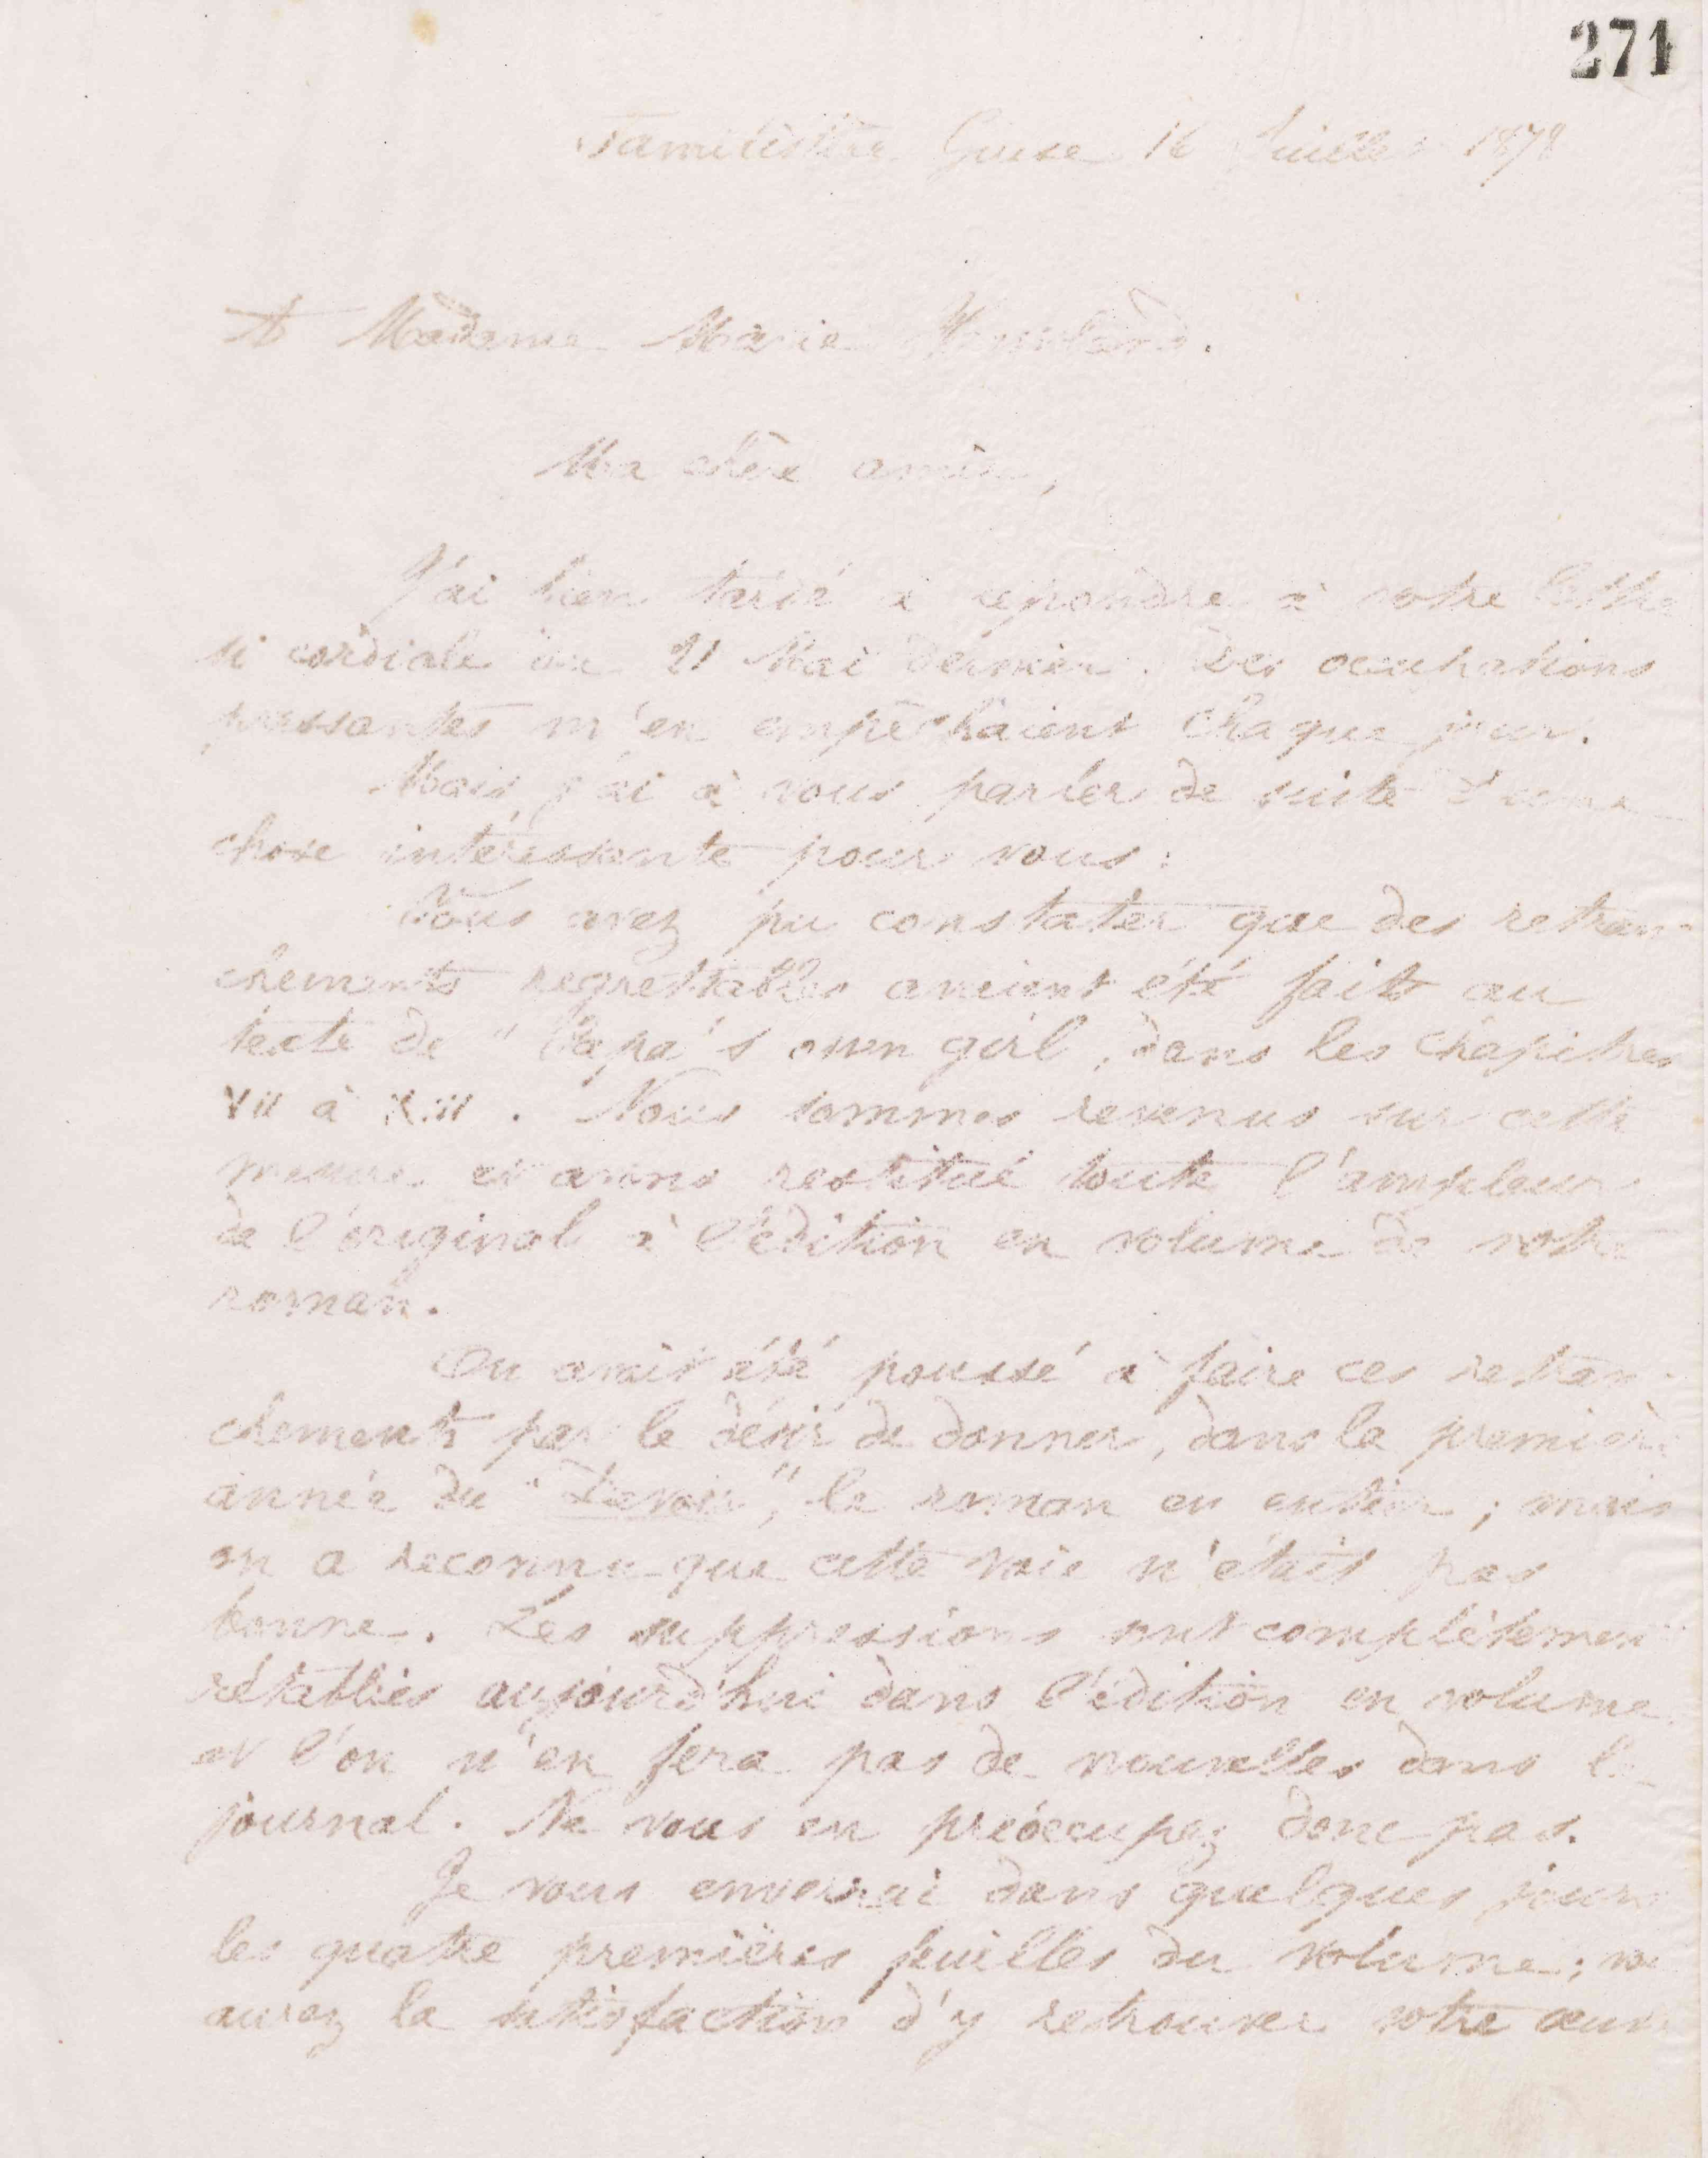 271
Familistère Guise 16 Juillet 1878
A Madame Marie Howland.
Ma chère amie,
J'ai bien tardé à répondre à votre lettre
si cordiale du 21 Mai dernier. Des occupations
pressantes m'en empêchaient chaque jour.
Mais j'ai à vous parler de suite d'une
chose intéressante pour vous :
Vous avez pu constater que des retran-
chements regrettables avaient été faits au
texte de "Papa's own girl, dans les chapitres
VII à XIII. Nous sommes revenus sur cette
mesure et avons restitué toute l'ampleur
de l'original à l'édition en volume de votre
roman.
On avait été poussé à faire ces retran-
chements par le désir de donner, dans la première
année du "Devoir", le roman en entier ; mais
on a reconnu que cette voie n'était pas
bonne. Les suppressions sont complètement
rétablies aujourd'hui dans l'édition en volume
et l'on n'en fera pas de nouvelles dans le
journal. Ne vous en préoccupez donc pas.
Je vous enverrai dans quelques jours
les quatre premières feuilles du volume ;
aurez la satisfaction d'y retrouver votre œuvre